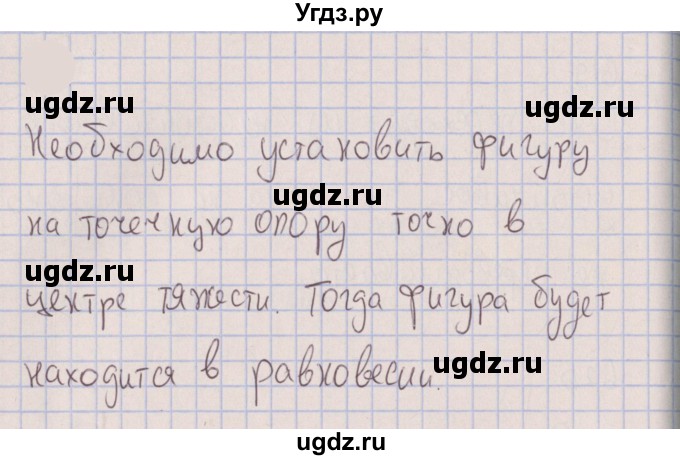 Угдз.ру
ugdz.ru
Необходимо установить фигуру
ugdz.ru
на точечную опору точно в
ugdz.ru
центре тяжести. Тогда фигура будет
ugdz.ru
находится в равновесии.
ugdz.ru